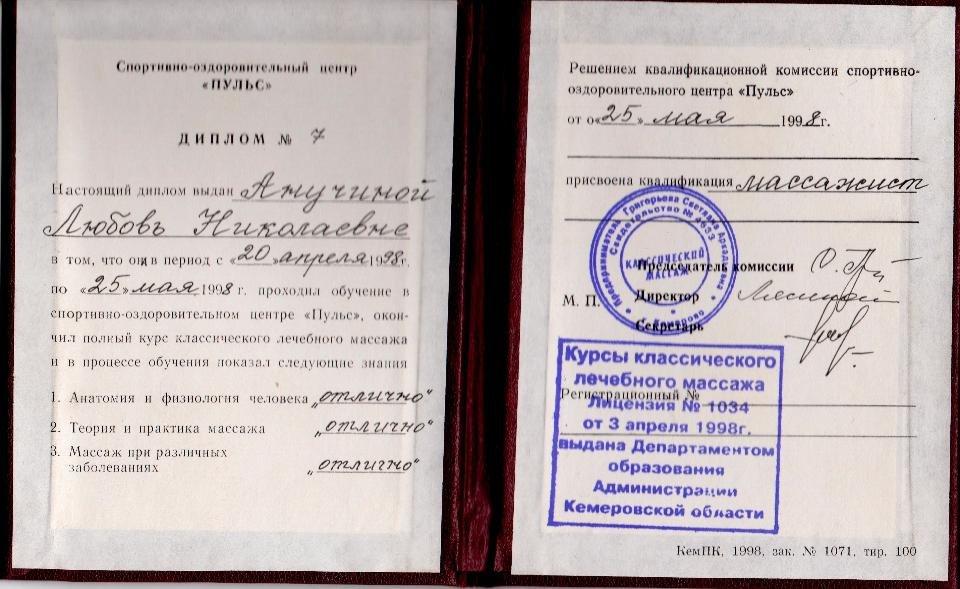 Спортивно-оздоровительный центр
«ПУЛЬС»
ДИПЛОМ № 7
Настоящий диплом выдан Анучиной
Любовь Николаевне
в том, что она в период с «20» апреля 1998 г.
по «25» мая 1998 г. проходил обучение в
спортивно-оздоровительном центре «Пульс», окон-
чил полный курс классического лечебного массажа
и в процессе обучения показал следующие знания
1. Анатомия и физиология человека „отлично“
2. Теория и практика массажа „отлично“
3. Массаж при различных
заболеваниях „отлично“
Решением квалификационной комиссии спортивно-
оздоровительного центра «Пульс»
от о«25» мая 1998 г.
присвоена квалификация массажист
Предприниматель Григорьева Светлана Аркадьевна
Свидетельство № 4633
КЛАССИЧЕСКИЙ
МАССАЖ
г. Кемерово
Председатель комиссии
М. П. Директор
Секретарь
Регистрационный №
Курсы классического
лечебного массажа
Лицензия № 1034
от 3 апреля 1998г.
выдана Департаментом
образования
Администрации
Кемеровской области
КемПК, 1998, зак. № 1071, тир. 100